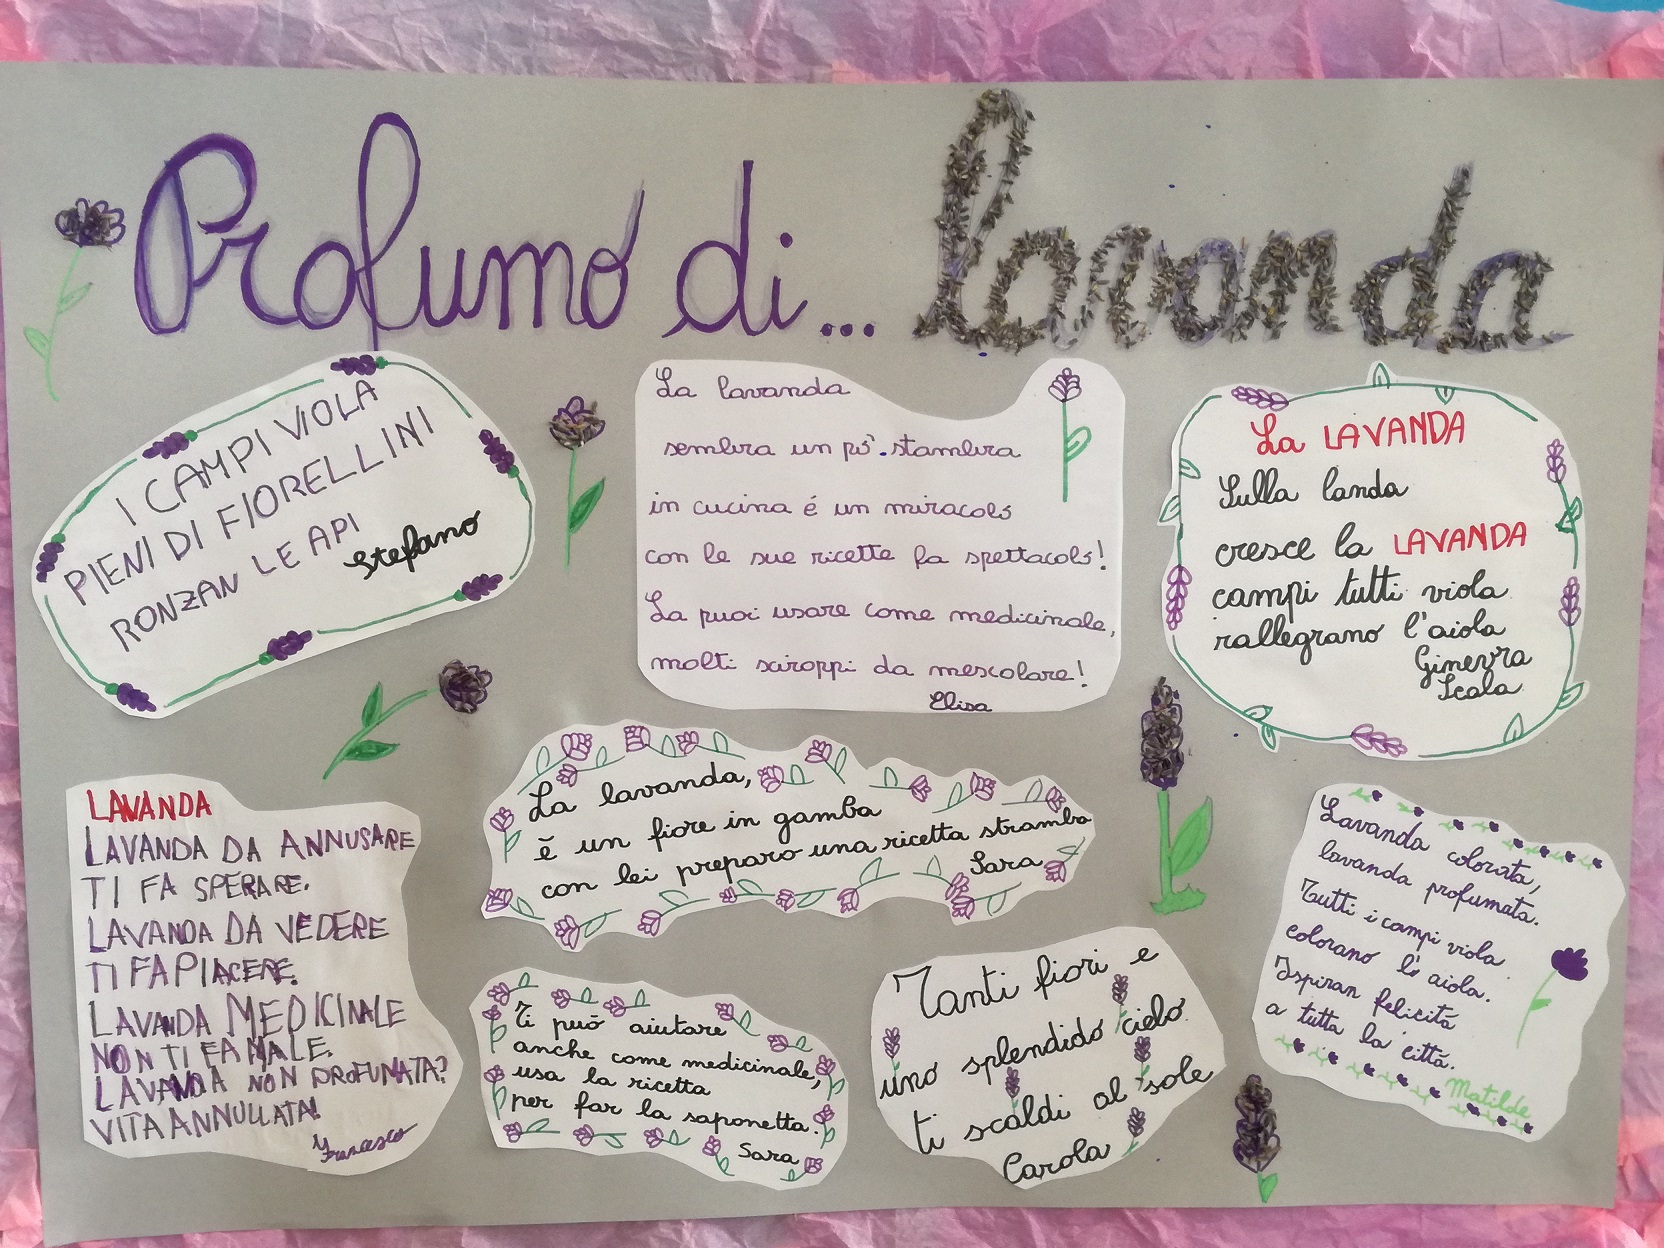 Profumo di... lavanda
I CAMPI VIOLA
PIENI DI FIORELLINI
RONZAN LE API
Stefano
La lavanda
sembra un pò stambra
in cucina é un miracolo
con le sue ricette fa spettacolo!
La puoi usare come medicinale,
molti sciroppi da mescolare!
Elisa
La LAVANDA
Sulla landa
cresce la LAVANDA
campi tutti viola
rallegrano l'aiola
Ginevra
Scala
LAVANDA
LAVANDA DA ANNUSARE
TI FA SPERARE.
LAVANDA DA VEDERE
TI FA PIACERE.
LAVANDA MEDICINALE
NON TI FA MALE.
LAVANDA NON PROFUMATA?
VITA ANNULLATA!
Francesco
La lavanda,
è un fiore in gamba
con lei preparo una ricetta stramba
Sara
Ti può aiutare
anche come medicinale,
usa la ricetta
per far la saponetta.
Sara
Tanti fiori e
uno splendido cielo
ti scaldi al sole
Carola
Lavanda colorata,
lavanda profumata.
Tutti i campi viola
colorano l'aiola.
Ispiran felicità
a tutta la città.
Matilde